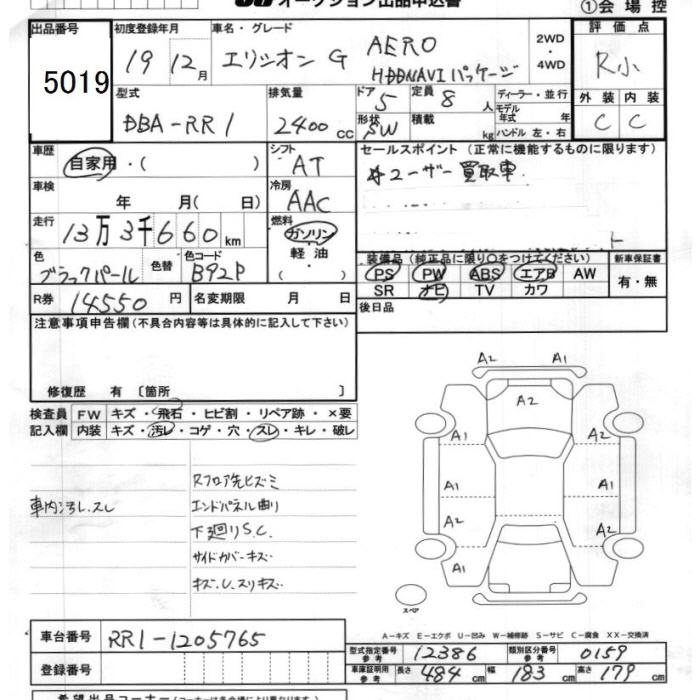 オークション出品申込書
①会場控
出品番号 5019
初度登録年月 19 12月
車名・グレード エリシオン G AERO HDDNAVIパッケージ
2WD・4WD
評価点 R小
型式 DBA-RR1
排気量 2400 CC
ドア 5 形状 SW
定員 8 人 積載 kg
ディーラー・並行
モデル年式 年
ハンドル 左・右
外装 内装
C C
車歴 自家用・( )
シフト AT
セールスポイント (正常に機能するものに限ります)
ユーザー買取車
車検 年 月( 日)
冷房 AAC
走行 13万3千660km
燃料 ガソリン・軽油・( )
色 ブラックパール 色替 色コード B92P
装備品 (純正品に限り○をつけてください) 新車保証書
PS PW ABS エアB AW 有・無
SR ナビ TV カワ
R券 14550円 名変期限 月 日
後日品
注意事項申告欄 (不具合内容等は具体的に記入して下さい)
修復歴 有 〔箇所 〕
検査員 FW キズ・飛石・ヒビ割・リペア跡・×要
記入欄 内装 キズ・汚レ・コゲ・穴・スレ・キレ・破レ
A2 A1
A2
A1 A1
A1 A1
A2 A2
A1
スペア
Rフロア先ヒズミ
車内汚レ.スレ エンドパネル曲り
下廻りS.C.
サイドカバーキズ
キズ.U.スリキズ
A-キズ E-エクボ U-凹み W-補修跡 S-サビ C-腐食 XX-交換済
車台番号 RR1-1205765
型式指定番号 参考 12386 類別区分番号 参考 0159
登録番号
車庫証明用 参考 長さ 484cm 幅 183cm 高さ 179cm
希望出品コーナー